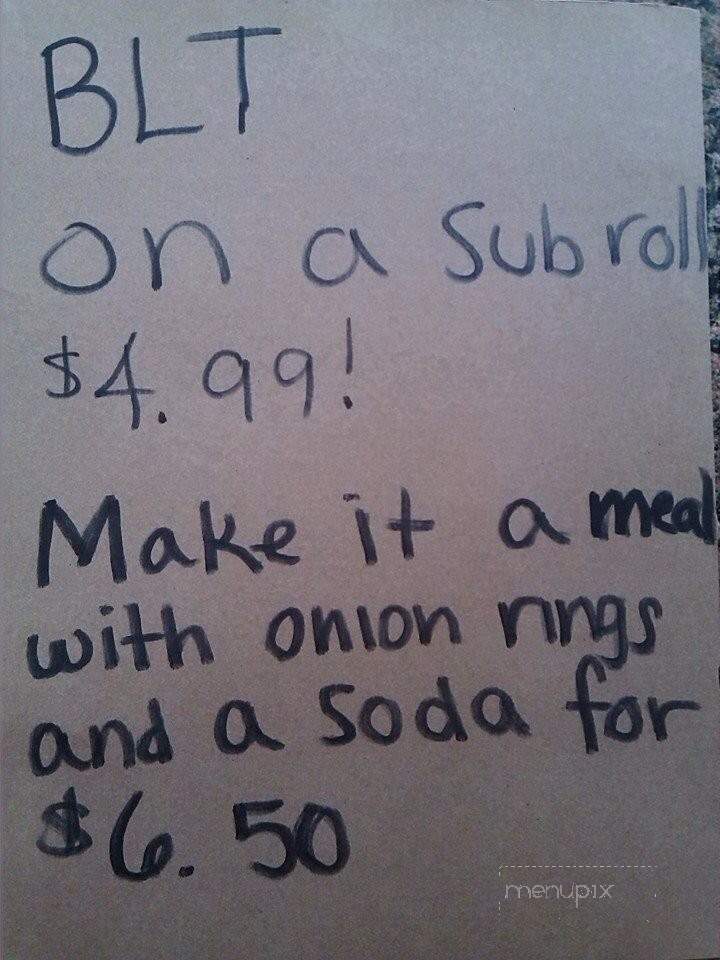 BLT
on a Sub roll
$4.99!
Make it a meal
with onion rings
and a soda for
$6.50
menupix